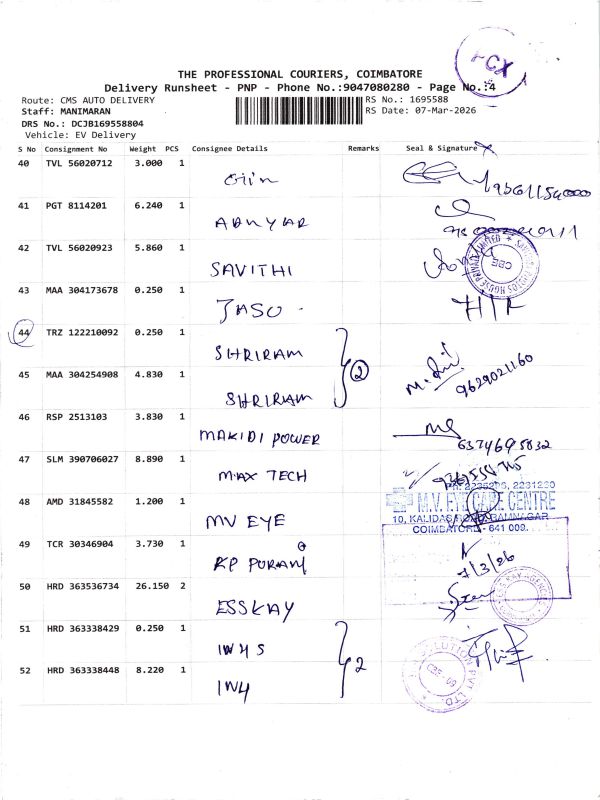 PCX
THE PROFESSIONAL COURIERS, COIMBATORE
Delivery Runsheet - PNP - Phone No.:9047080280 - Page No.:4
Route: CMS AUTO DELIVERY RS No.: 1695588
Staff: MANIMARAN RS Date: 07-Mar-2026
DRS No.: DCJB169558804
Vehicle: EV Delivery
S No Consignment No Weight PCS Consignee Details Remarks Seal & Signature
40 TVL 56020712 3.000 1
41 PGT 8114201 6.240 1 ADNYAR
42 TVL 56020923 5.860 1 SAVITHI
43 MAA 304173678 0.250 1 JASO HIH
44 TRZ 122210092 0.250 1 SHRIRAM
2
45 MAA 304254908 4.830 1 SHRIRAM 9629021160
46 RSP 2513103 3.830 1 MAKIDI POWER 6374695832
47 SLM 390706027 8.890 1 MAX TECH
2231230
48 AMD 31845582 1.200 1 MV EYE M.V. EYE CARE CENTRE
10, KALIDAS ROAD, RAMNAGAR
COIMBATORE - 641 009.
49 TCR 30346904 3.730 1 RP PURAM 7/3/26
50 HRD 363536734 26.150 2 ESSKAY
51 HRD 363338429 0.250 1 INYS
2
52 HRD 363338448 8.220 1 INY
SOLUTION PVT LTD.
CBE-09